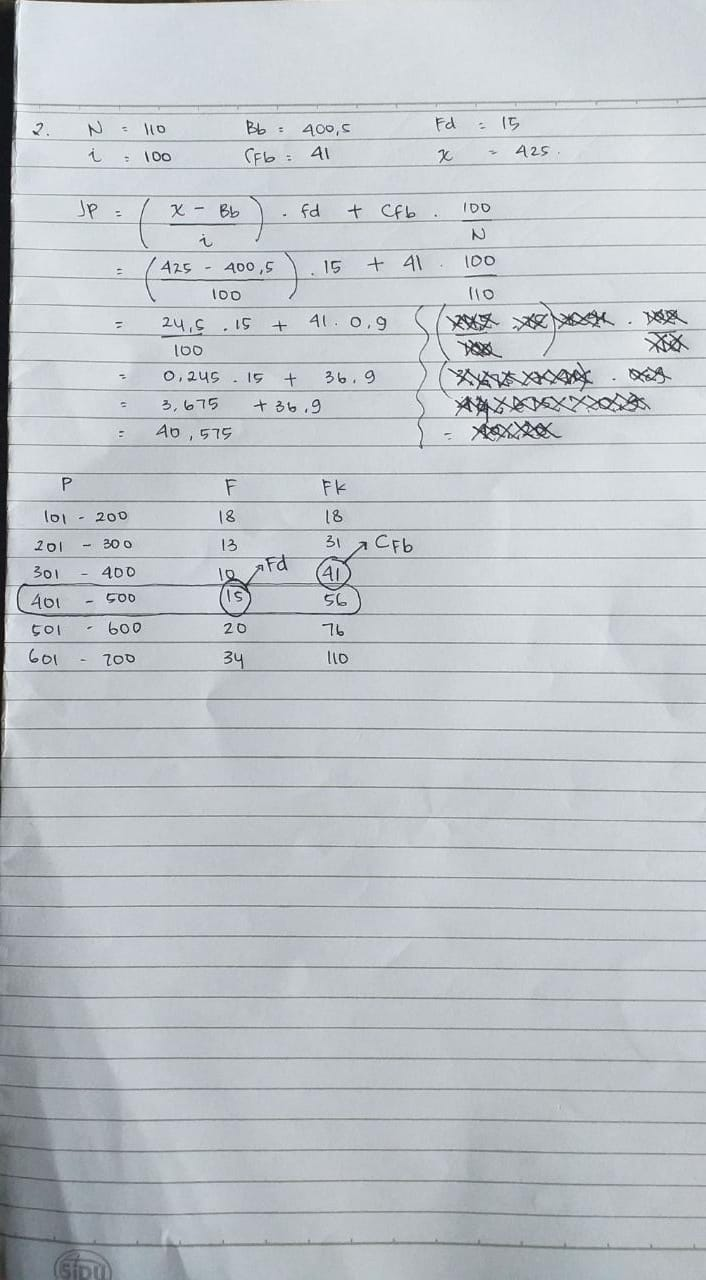 2. N = 110 Bb = 400,5 Fd = 15
i = 100 CFb = 41 x = 425.
JP = ( x - Bb / i ) . fd + Cfb . 100 / N
= ( 425 - 400,5 / 100 ) . 15 + 41 . 100 / 110
= 24,5 / 100 . 15 + 41 . 0,9
= 0,245 . 15 + 36,9
= 3,675 + 36,9
= 40,575
P F Fk
101 - 200 18 18
201 - 300 13 31 → CFb
301 - 400 10 → Fd 41
401 - 500 15 56
501 - 600 20 76
601 - 700 34 110
SIDU